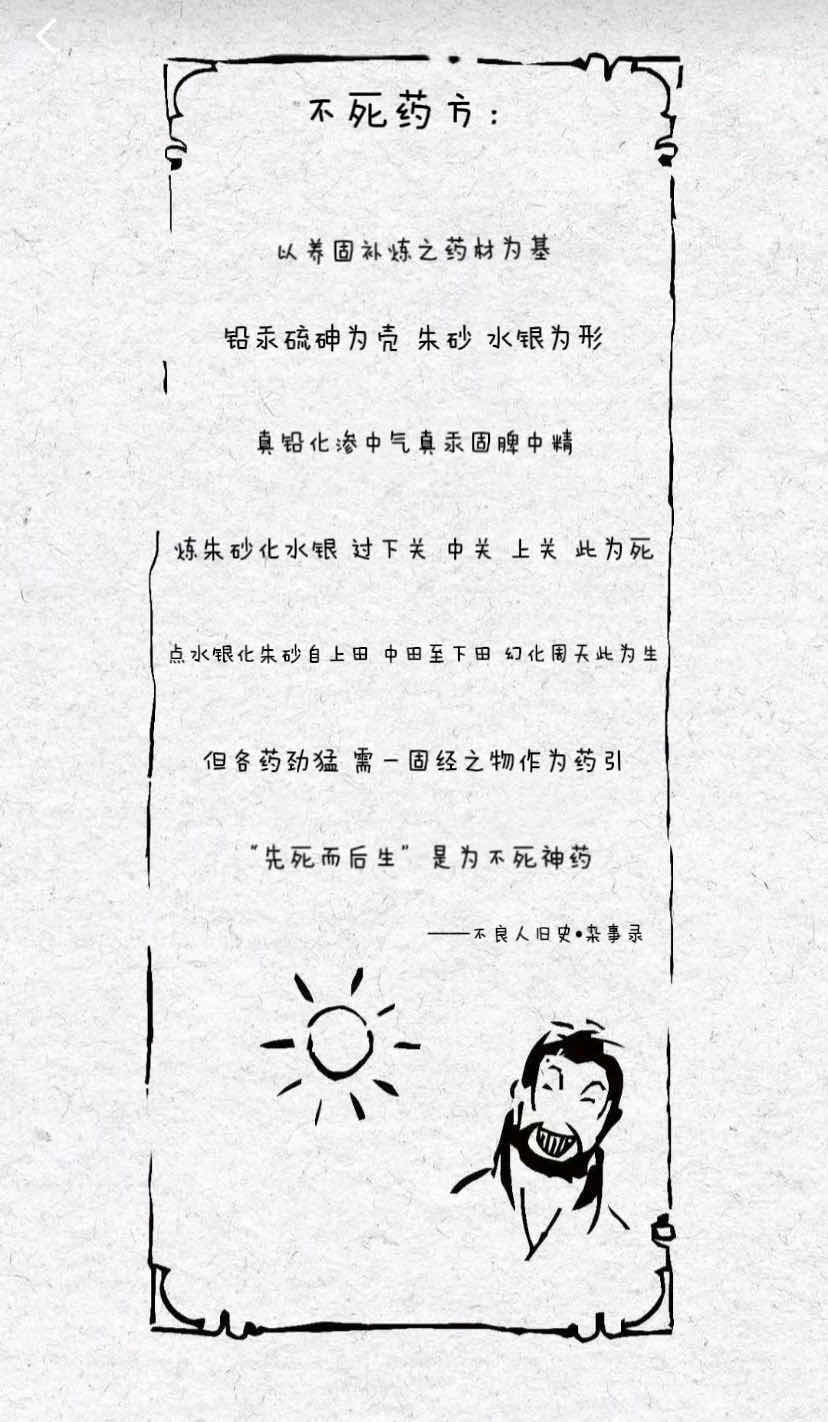 不死药方：
以养固补炼之药材为基
铅汞硫砷为壳 朱砂 水银为形
真铅化渗中气真汞固脾中精
炼朱砂化水银 过下关 中关 上关 此为死
点水银化朱砂自上田 中田至下田 幻化周天此为生
但各药劲猛 需一固经之物作为药引
“先死而后生” 是为不死神药
——不良人旧史•杂事录